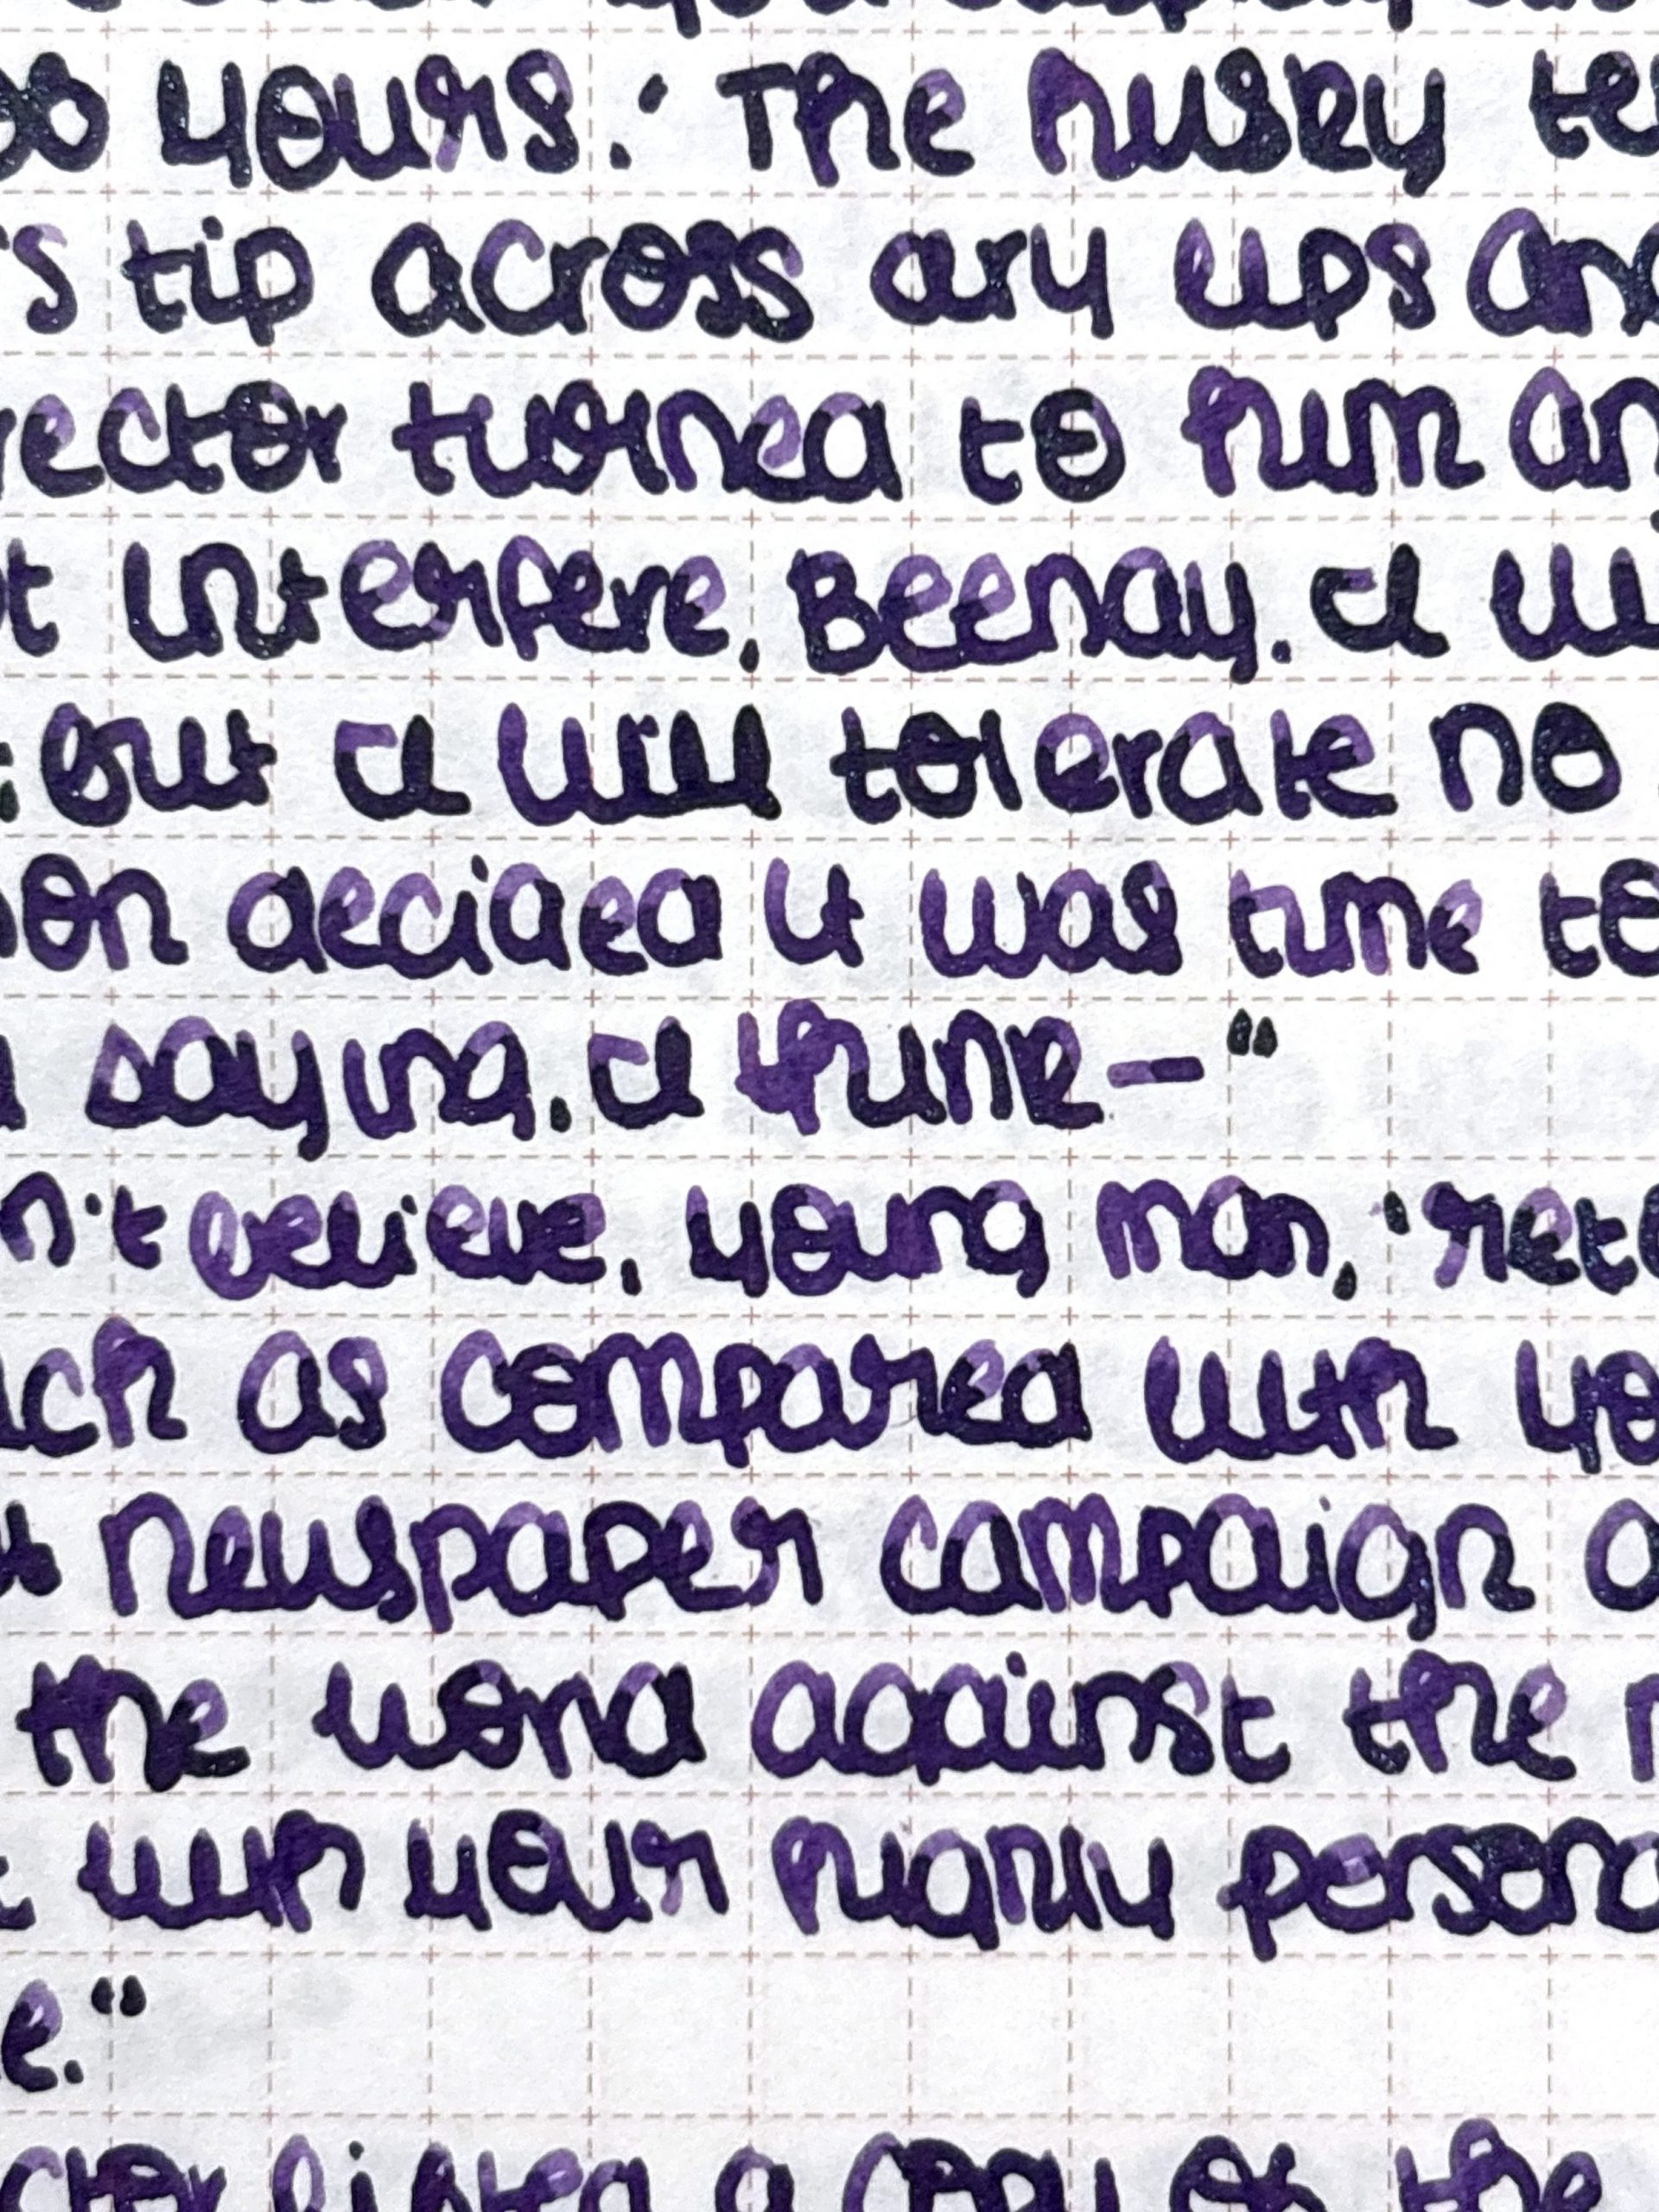 do yours." The husky te
's tip across dry lips and
rector turned to him an
ot interfere, Beenay. I wi
; but I will tolerate no
on decided it was time to
saying. I think—"
n't believe, young man, "reto
uch as compared with yo
t newspaper campaign a
the world against the m
t with your highly persona
e."
ector lifted a copy of the